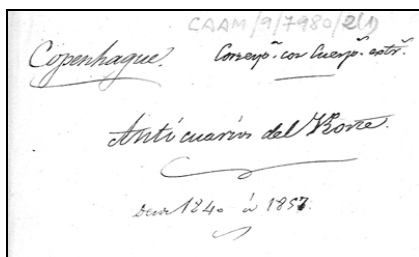 CAAM/9/7980/2(1)
Copenhague. Correspª. con Cuerpª. extrª.
Anticuarios del Norte.
Desde 1840 á 1857.